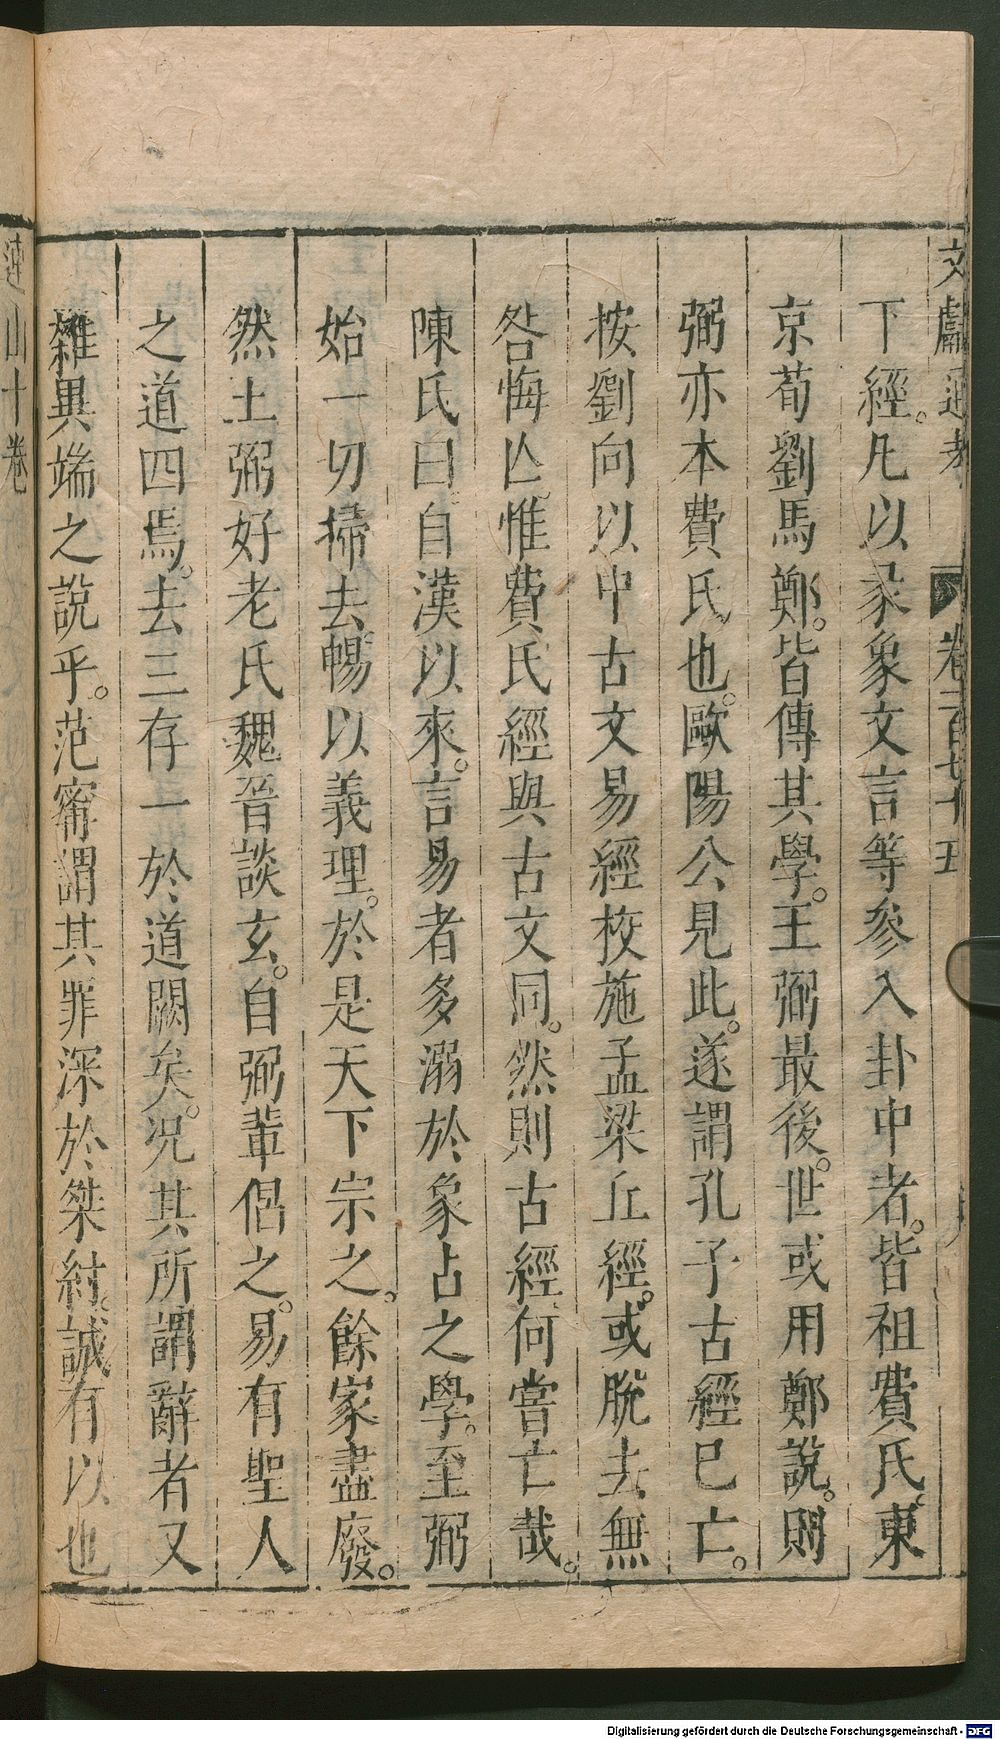 文獻通考 卷一百七十五
下經。凡以彖象文言等參入卦中者。皆祖費氏。東
京荀劉馬鄭。皆傳其學。王弼最後。世或用鄭說。則
弼亦本費氏也。歐陽公見此。遂謂孔子古經已亡。
按劉向以中古文易經校施孟梁丘經。或脫去無
咎悔亡。惟費氏經與古文同。然則古經何嘗亡哉。
陳氏曰。自漢以來。言易者多溺於象占之學。至弼
始一切掃去。暢以義理。於是天下宗之。餘家盡廢。
然土弼好老氏魏晉談玄。自弼輩倡之。易有聖人
之道四焉。去三存一於道闕矣。况其所謂辭者又
雜異端之說乎。范甯謂其罪深於桀紂。誠有以也
連山十卷
Digitalisierung gefördert durch die Deutsche Forschungsgemeinschaft - DFG